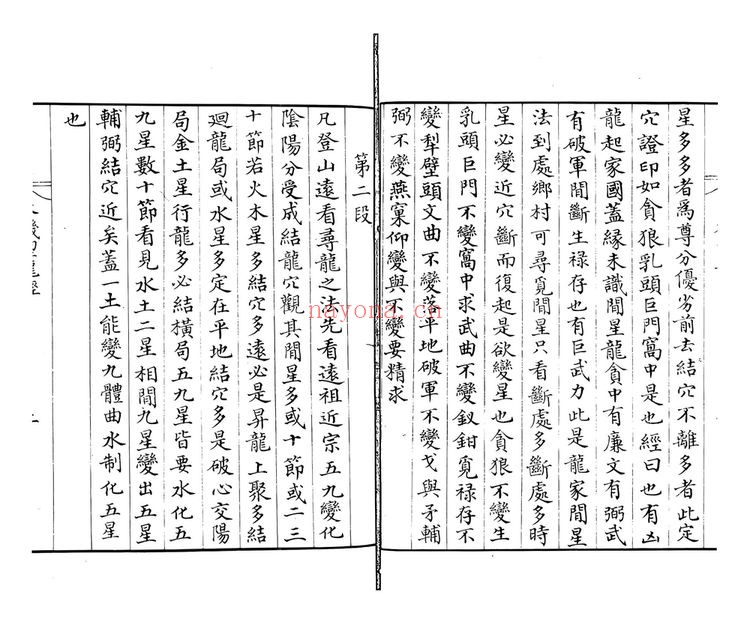 星多多者爲尊分優劣前去結穴不離多者此定
穴證印如貪狼乳頭巨門窩中是也經曰也有凶
龍起家國蓋緣未識間星龍貪中有廉文有弼武
有破軍間斷生祿存也有巨武力此是龍家間星
法到處鄉村可尋覓間星只看斷處多斷處多時
星必變近穴斷而復起是欲變星也貪狼不變生
乳頭巨門不變窩中求武曲不變釵鉗覓祿存不
變犁壁頭文曲不變落平地破軍不變戈與矛輔
弼不變燕窠仰變與不變要精求
第二段
凡登山遠看尋龍之法先看遠祖近宗五九變化
陰陽分受成結龍穴觀其間星多或十節或二三
十節若火木星多結穴多遠必是昇龍上聚多結
迴龍局或水星多定在平地結穴多是破心交陽
局金土星行龍多必結橫局五九星皆要水化五
九星數十節看見水土二星相間九星變出五星
輔弼結穴近矣蓋一土能變九體曲水制化五星
也
nayona.cn